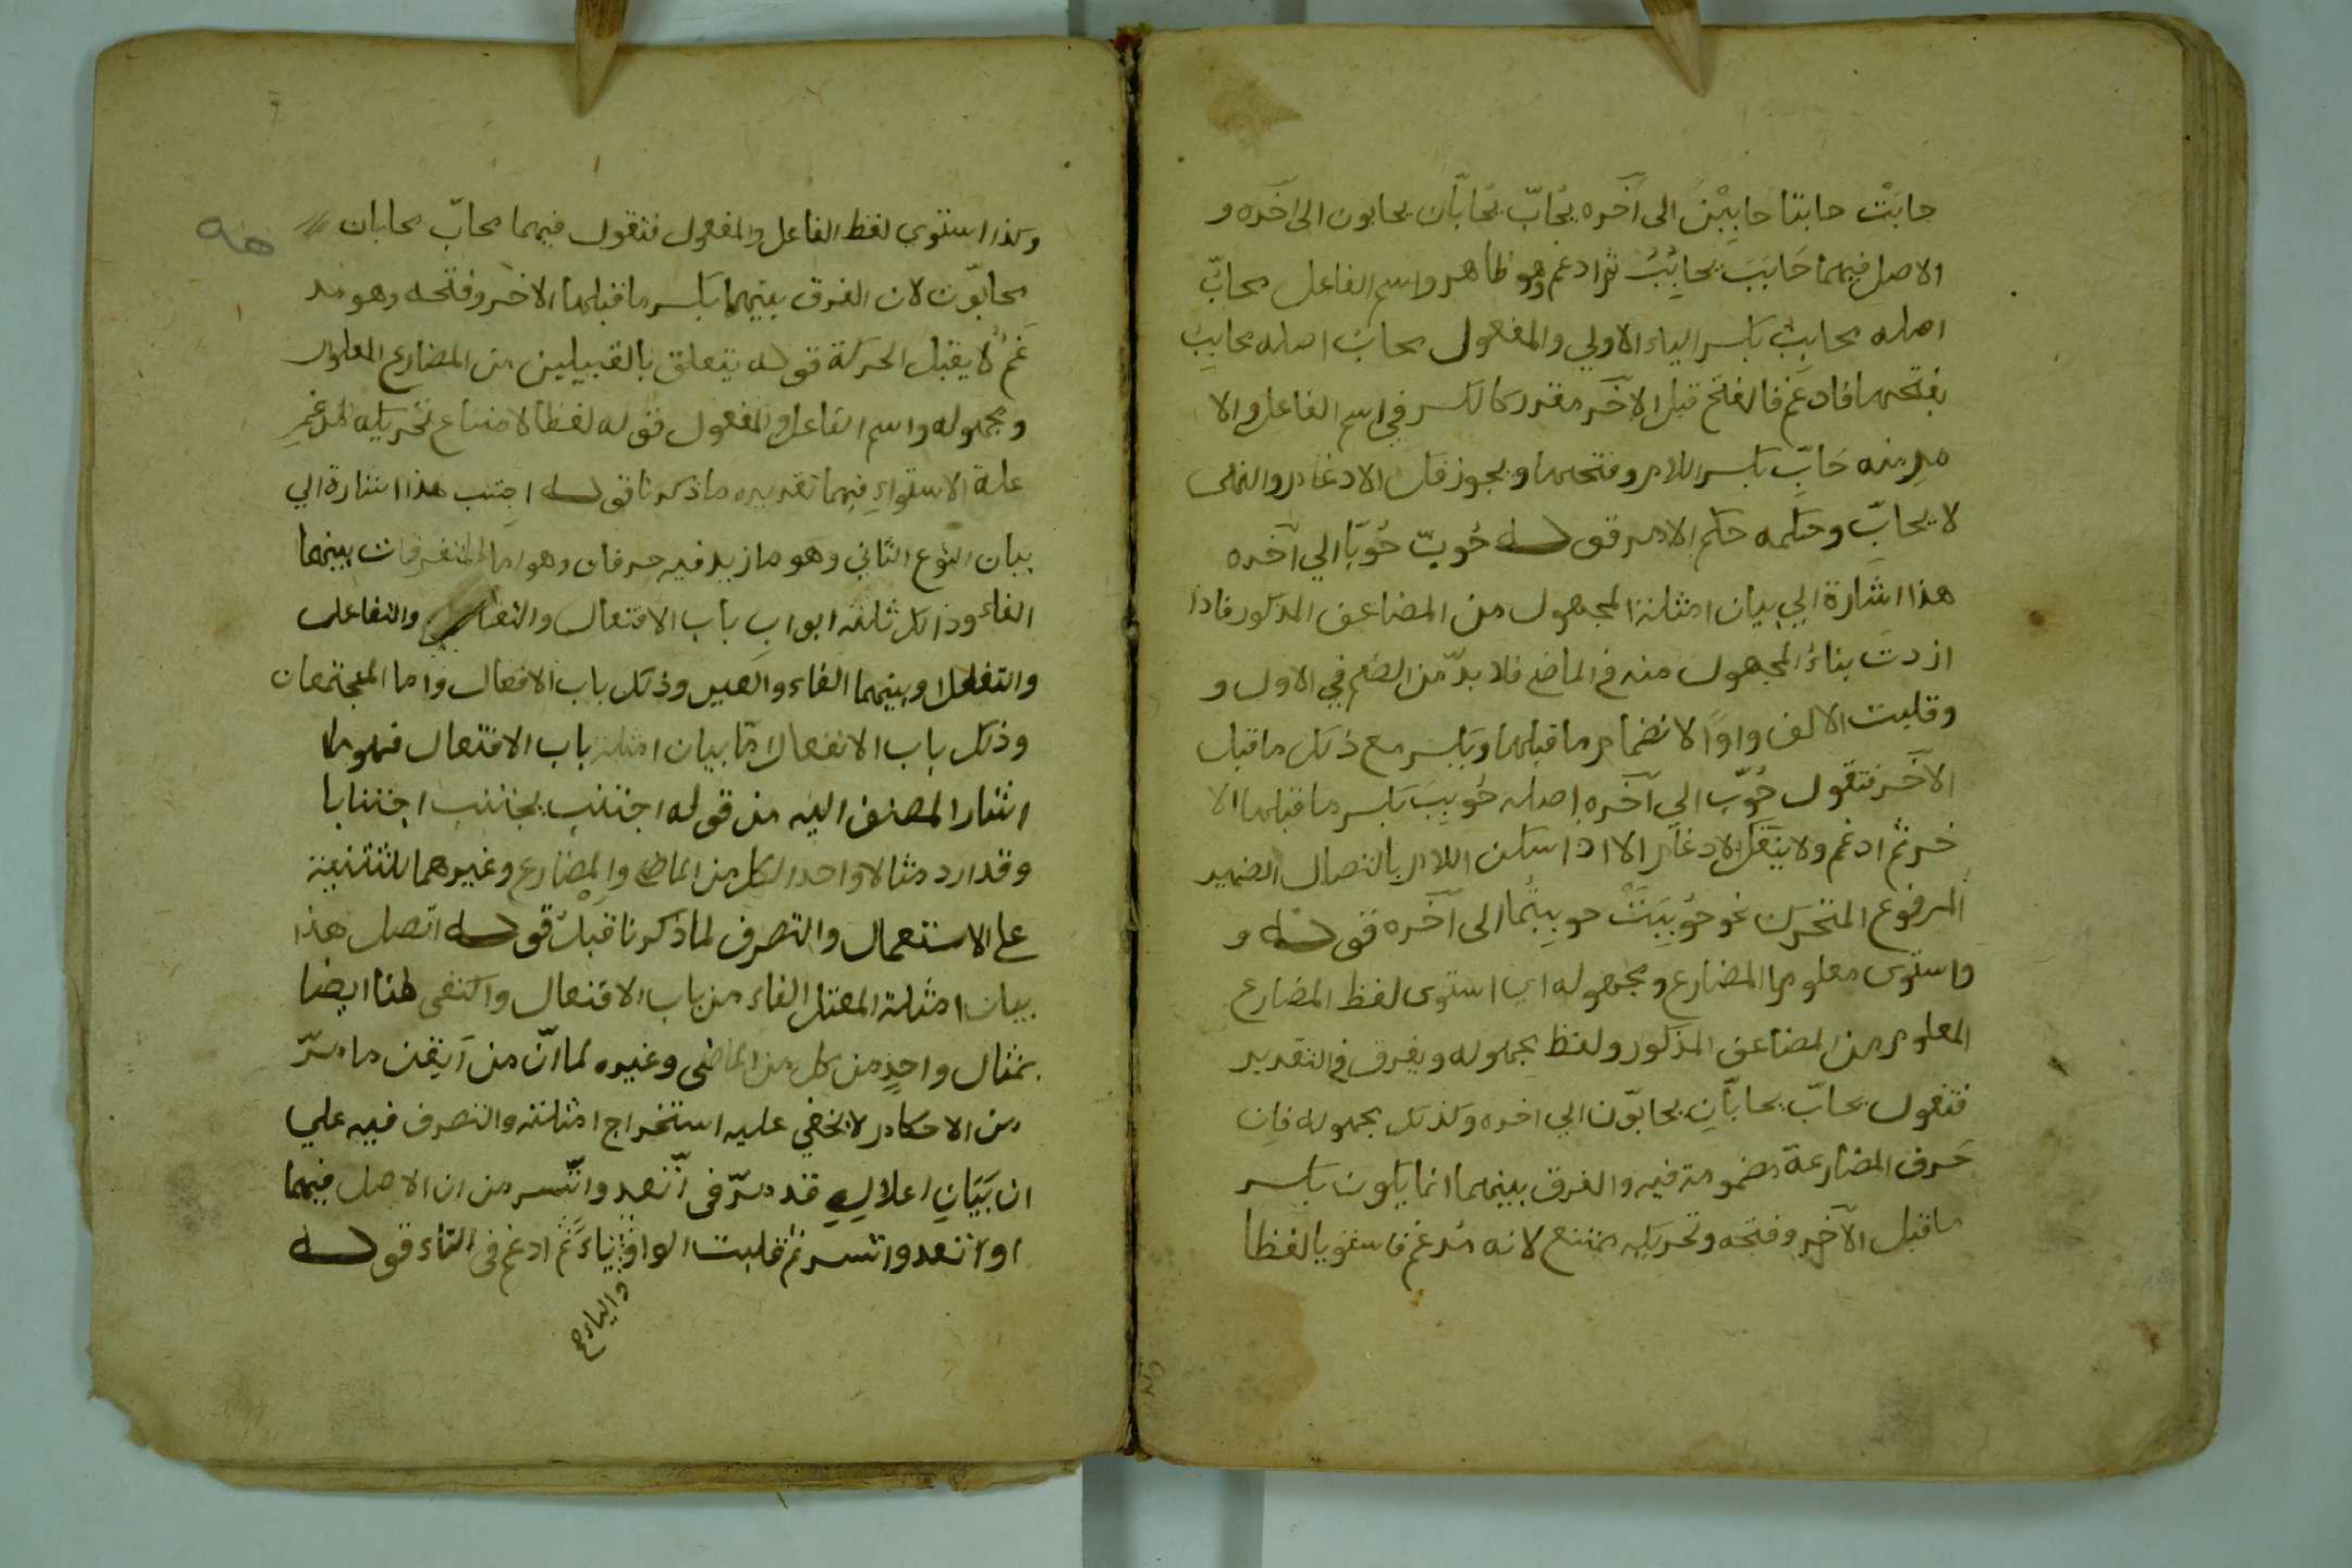 حابَتْ حابتا حابِبْنَ الى آخره يُحَابّ يُحَابّان يحابون الى آخره و
الاصل فيهما حَابَبَ يُحابِبُ ثم ادغم وهو ظاهر واسم الفاعل محابّ
اصله محابِبٌ بكسر الباء الاولي والمفعول محابّ اصله محابب
بفتحهما فادغم فالفتح قبل الآخر مقدر كالكسر في اسم الفاعل والا
مر منه حَابِّ بكسر اللام وفتحها ويجوز فك الادغام والنهى
لا يحابِّ وحكمه حكم الامر قوله حُوبّ حُوبّا الي آخره
هذا اشارة الي بيان امثلة المجهول من المضاعف المذكور فاذا
اردت بناءُ المجهول منه في الماضي فلا بدّ من الضم في الاول و
وقلبت الالف واوًا لانضمام ما قبلها وبكسر مع ذلك ما قبل
الآخر فتقول حُوبّ الي آخره اصله حُوبِبَ بكسر ما قبلها الا
خر ثم ادغم ولا ينفك الادغام الا اذا سكن اللام بالتصال الضمير
المرفوع المتحرك نحو حُوبِبَتْ حوبِبتُما الى آخره قوله و
واستوى معلوم المضارع ومجهوله اي استوى لفظ المضارع
المعلوم من المضاعف المذكور ولفظ مجهوله ويفرق في التقدير
فتقول يحابّ يحابّانِ يحابّون الي اخره وكذلك مجهوله فان
حَرف المضارعة مضمومة فيه والفرق بينهما انما يكون بكسر
ماقبل الآخر وفتحه وتحريكه ممتنع لانه مُدغم فاستويا لفظا
وكذا استوى لفظ الفاعل والمفعول فتقول فيهما محابّ محابان
محابّون لان الفرق بينهما بكسر ما قبلها الاخر وفتحه وهو مد
غم لا يقبل الحركة قوله يتعلق بالقبيلين من المضارع المعلوم
ومجهوله واسم الفاعل والمفعول قوله لفظا لامتناع تحريكه المدغم
علة الاستواءِ فيهما تقديره ماذكرنا قوله اجتنب هذا اشارة الي
بيان النوع الثاني وهو ما زيد فيه حرفان وهو اما المتفرقات بينهما
الفاء وذالك ثلثه ابواب باب الافتعال والتفاعل
والتفعلل او بينهما الفاء والعين وذلك باب الافعال واما المجتمعان
وذلك باب الانفعال امّا بيان امثلة باب الافتعال فهو ما
اشار المصنف اليه من قوله اجتنب يجتنب اجتنابا
وقد ارد مثالا واحدا لكل من الماضي والمضارع وغيرهما للتنبيه
على الاستعمال والتصرف لما ذكرنا قَبْلُ قوله اتصل هذا
بيان امثلة المعتل الفاء من باب الافتعال واكتفى هنا ايضا
بمثال واحدٍ من كل من الماضي وغيره لما انّ من آيقن ما مرّ
من الاحكام لا يخفي عليه استخراج امثلته والتصرف فيه علي
ان بَيَانِ اعلالِهِ قد مرّ فى اتّعد واتّسر من ان الاصل فيهما
اوتعد وايتسر ثم قلبت الواو تاءً ثم ادغم فى التاء قوله
والياء صح